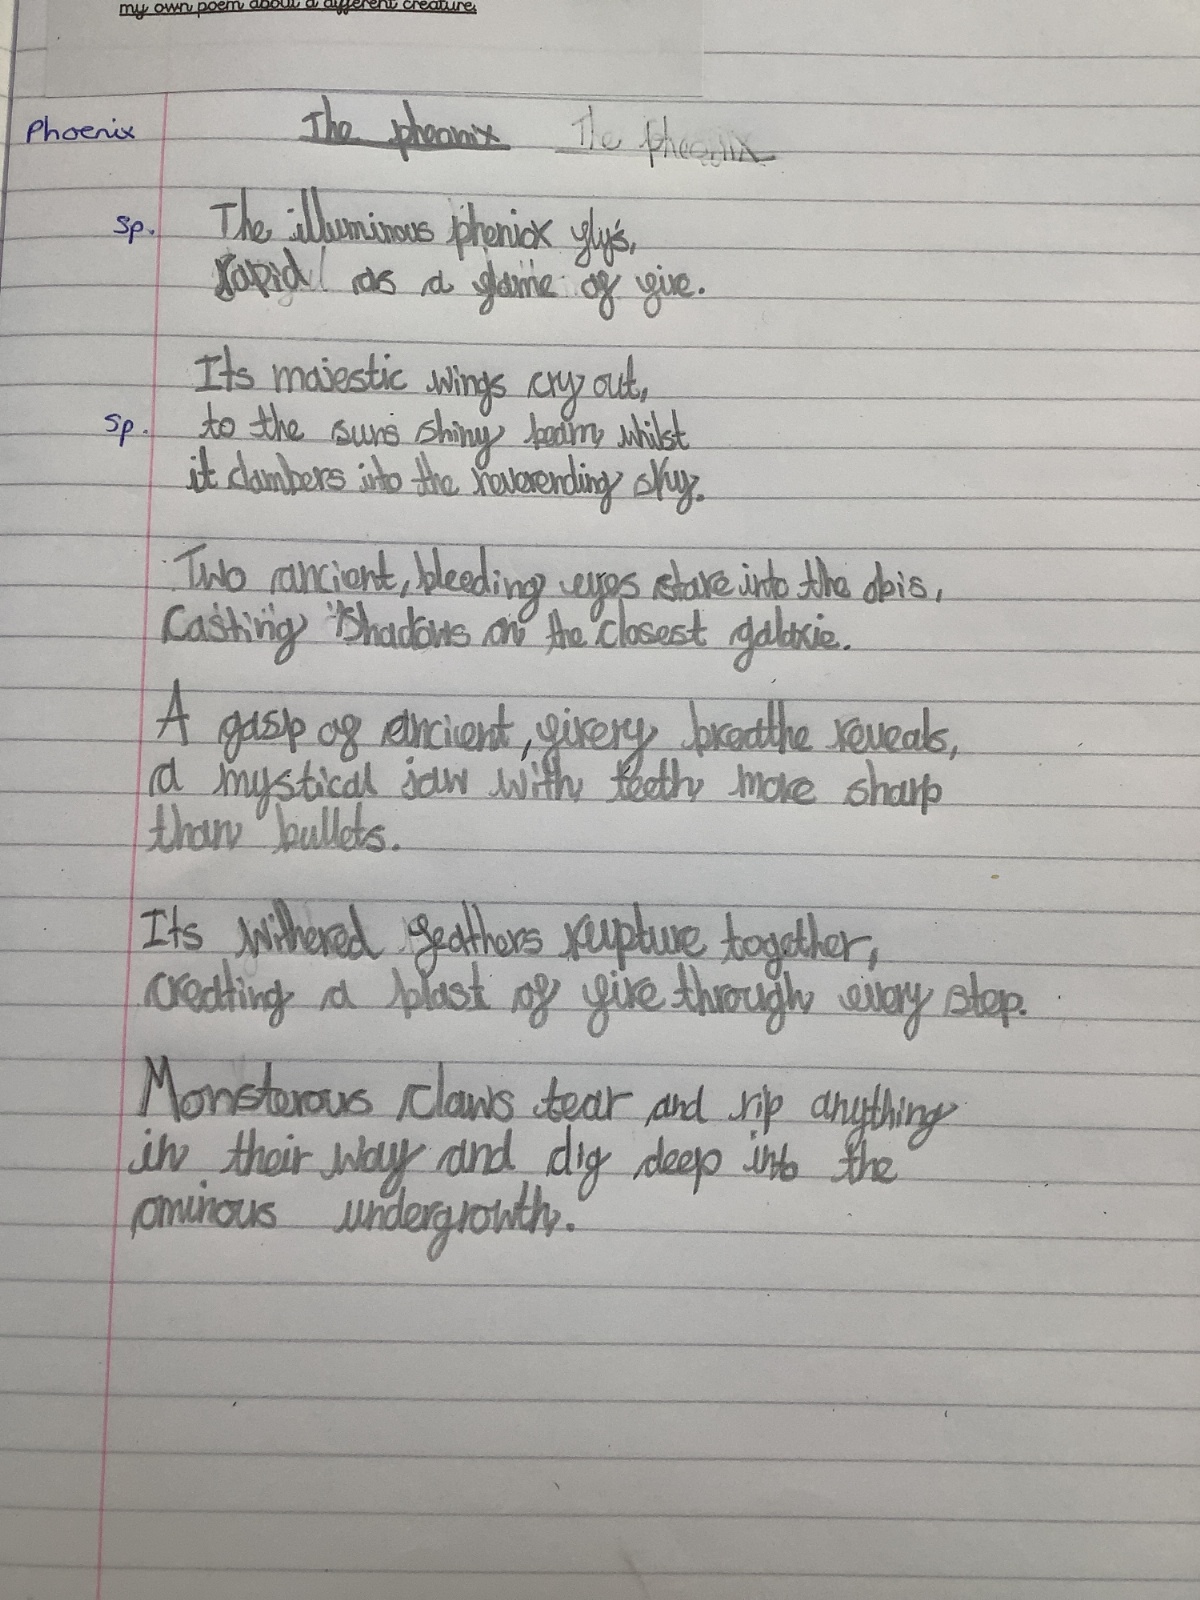 my own poem about a different creature.
Phoenix The pheonix The pheonix
sp. The illuminous pheniox fly's,
rapid as a flame of fire.
Its majestic wings cry out,
sp. to the suns shiny beam whilst
it clambers into the neverending sky.
Two ancient, bleeding eyes stare into the abis,
Casting Shadows on the closest galaxie.
A gasp of ancient, firery breathe reveals,
a mystical jaw with teeth more sharp
than bullets.
Its withered feathers rupture together,
creating a blast of fire through every step.
Monsterous claws tear and rip anything
in their way and dig deep into the
ominous undergrowth.